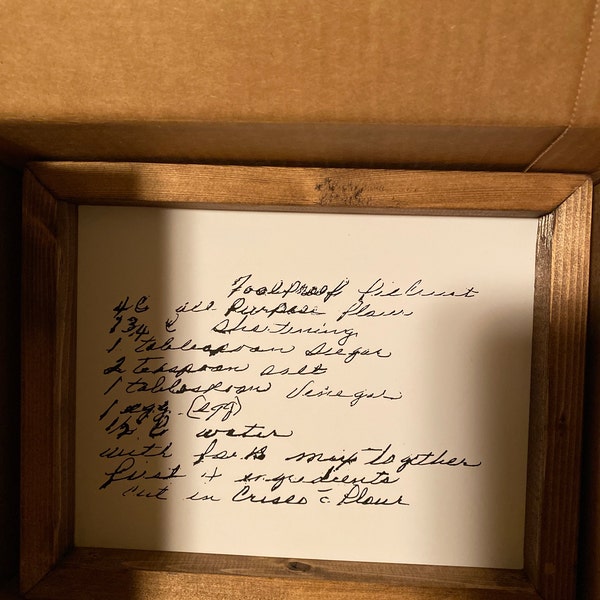 Foolproof Pie Crust
4 C all Purpose flour
1 3/4 C Shortening
1 tablespoon sugar
2 teaspoon salt
1 tablespoon Vinegar
1 egg (egg)
1/2 C water
with fork mix together
first 4 ingredients
cut in Crisco c̄ flour